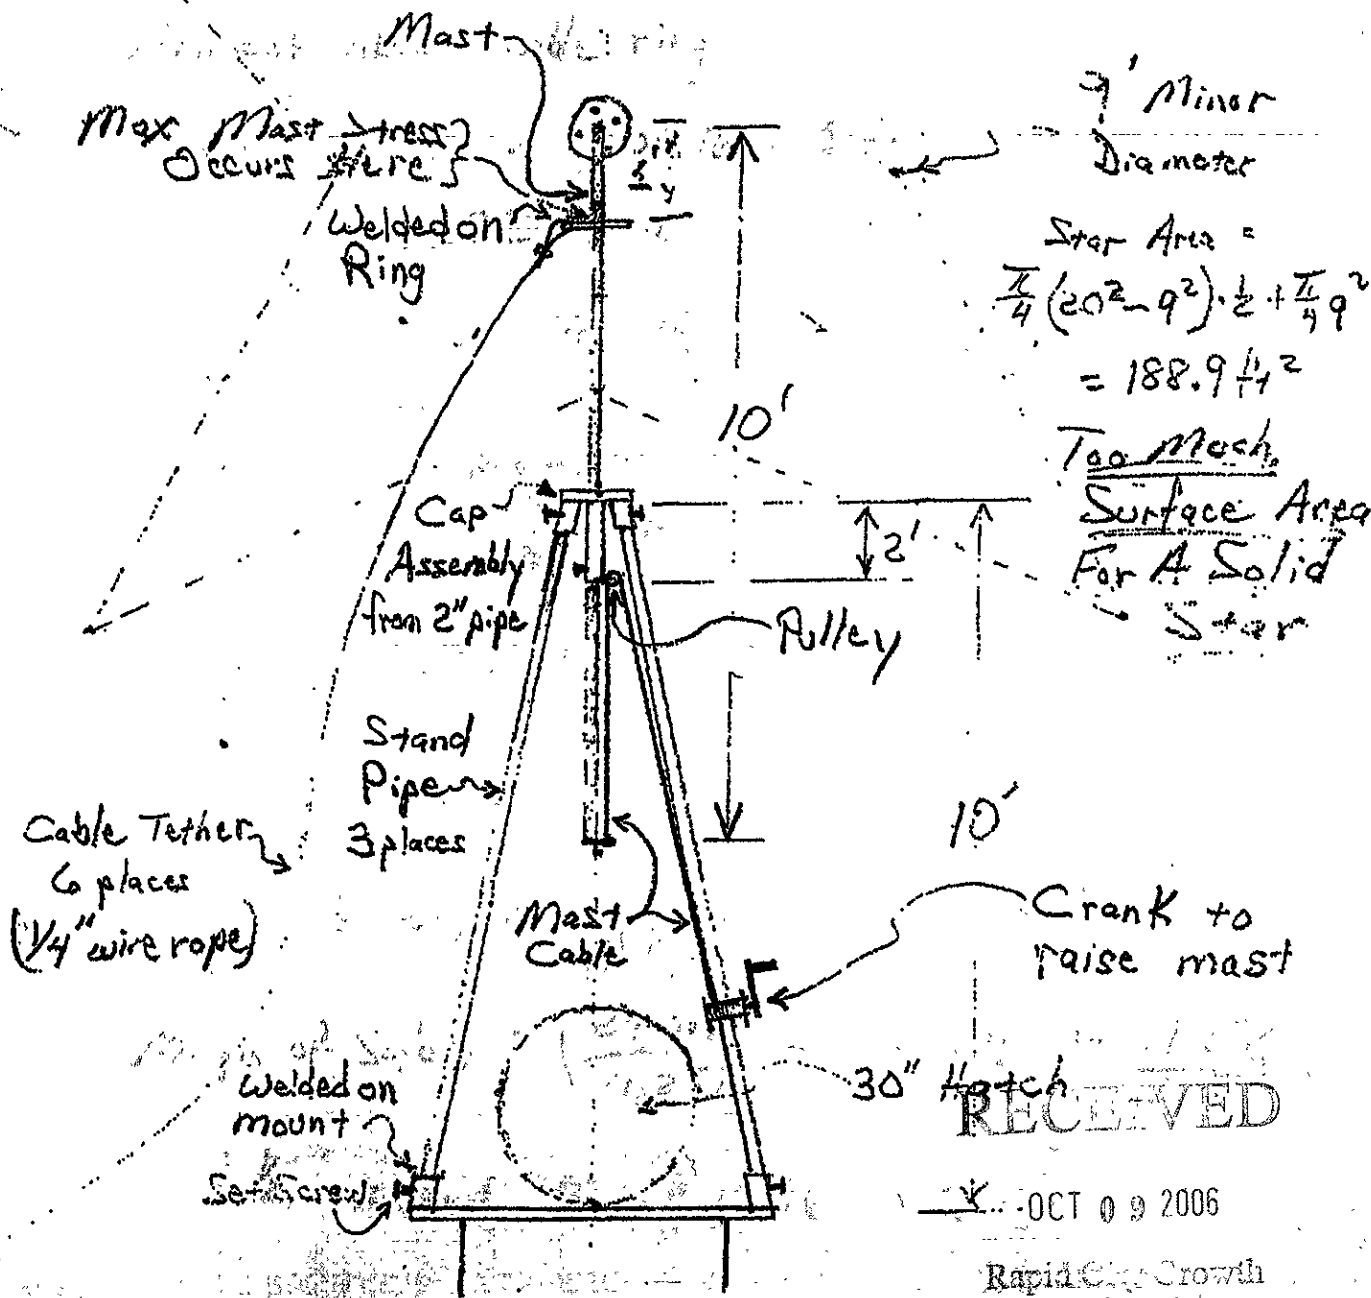 Mast
Max Mast Stress
Occurs Here
Welded on
Ring
9' Minor
Diameter
Star Area =
π/4 (20² - 9²) · 1/2 + π/4 9²
= 188.9 ft²
Too Much
Surface Area
For A Solid
Star
10'
Cap
Assembly
from 2" pipe
2'
Pulley
Stand
Pipe
3 places
Cable Tether
6 places
(1/4" wire rope)
Mast
Cable
10'
Crank to
raise mast
30" Hatch
Welded on
mount
Set Screw
RECEIVED
OCT 09 2006
Rapid City Growth